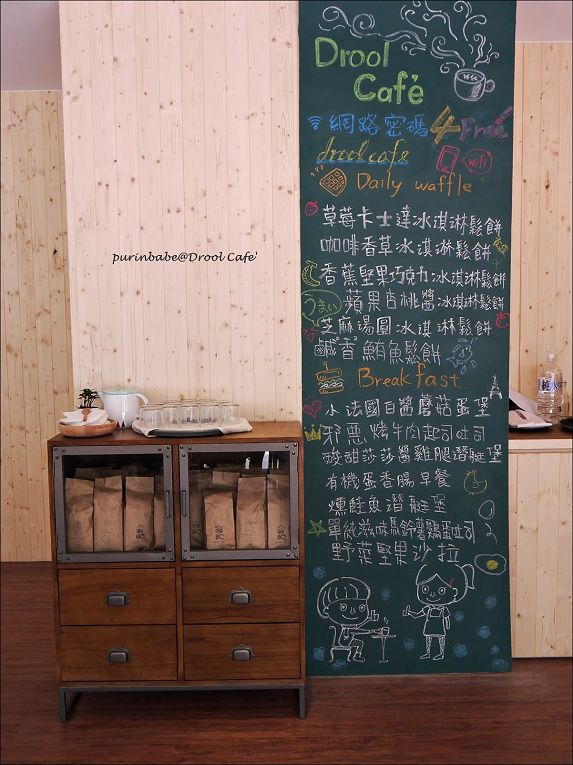 Drool
Café
網路密碼 4 Free
drool cafe
wifi
Daily waffle
草莓卡士達冰淇淋鬆餅
咖啡香草冰淇淋鬆餅
香蕉堅果巧克力冰淇淋鬆餅
うまい
蘋果肉桃醬冰淇淋鬆餅
芝麻湯圓冰淇淋鬆餅
鹹香鮪魚鬆餅
Breakfast
小法國白醬蘑菇蛋堡
邪惡烤牛肉起司吐司
酸甜莎莎醬雞腿潛艇堡
有機蛋香腸早餐
燻鮭魚潛艇堡
單純滋味馬鈴薯雞蛋吐司
野菜堅果沙拉
purinbabe@Drool Cafe'
純水